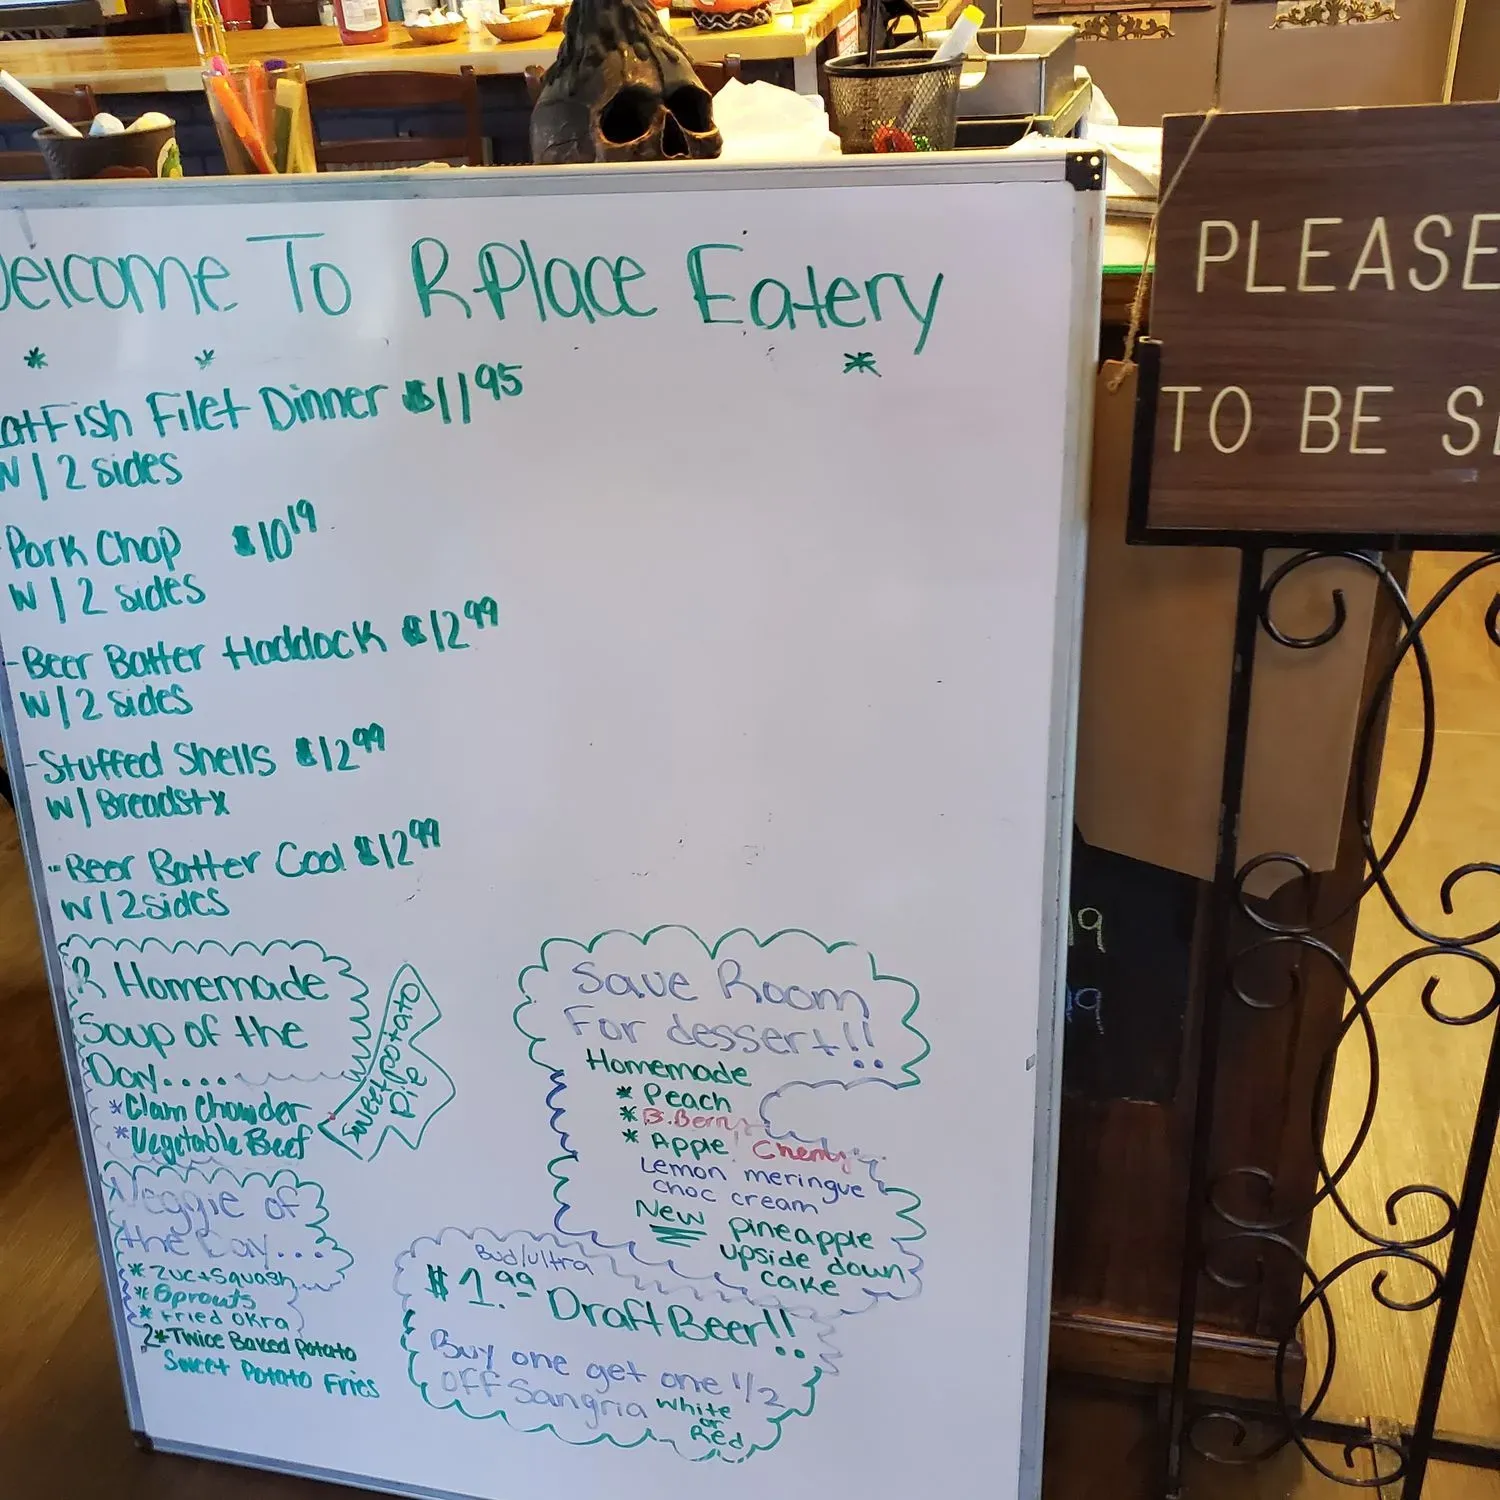 Welcome To R Place Eatery
* * *
CatFish Filet Dinner $11.95
W/2 sides
-Pork Chop $10.19
W/2 sides
-Beer Batter Haddock $12.99
W/2 sides
-Stuffed Shells $12.99
W/Breadstx
-Beer Batter Cod $12.99
W/2 sides
R Homemade
Soup of the
Day....
*Clam Chowder
*Vegetable Beef
Sweet potato
pie
Veggie of
the Day...
*Zuc+Squash
*Bprouts
*Fried Okra
2*Twice Baked Potato
Sweet Potato Fries
Save Room
For dessert!!
Homemade
*Peach
*B.Berry
*Apple Cherry
Lemon meringue
choc cream
New pineapple
upside down
cake
Bud/ultra
$1.99 Draft Beer!!
Buy one get one 1/2
OFF Sangria White
or
Red
PLEASE
TO BE